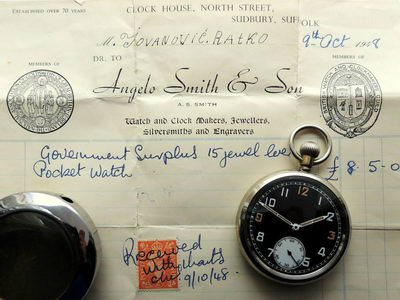 ESTABLISHED OVER 70 YEARS
CLOCK HOUSE, NORTH STREET,
SUDBURY, SUFFOLK
M. Jovanović. Ratko
9th Oct 1948
DR. TO
MEMBERS OF
MEMBERS OF
Angelo Smith & Son
A. S. SMITH
Watch and Clock Makers, Jewellers,
Silversmiths and Engravers
Government Surplus 15 jewel lever
Pocket Watch
£ 8 5-0
Received
with thanks
9/10/48.
12
2
4
8
10